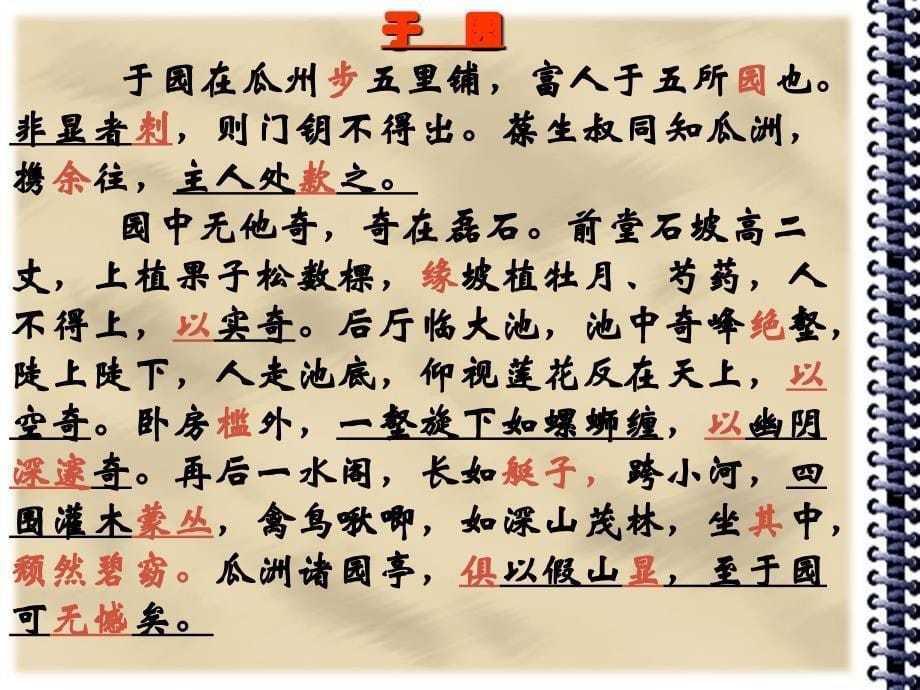 于 园
于园在瓜州步五里铺，富人于五所园也。
非显者刺，则门钥不得出。葆生叔同知瓜洲，
携余往，主人处款之。
园中无他奇，奇在磊石。前堂石坡高二
丈，上植果子松数棵，缘坡植牡月、芍药，人
不得上，以实奇。后厅临大池，池中奇峰绝壑，
陡上陡下，人走池底，仰视莲花反在天上，以
空奇。卧房槛外，一壑旋下如螺蛳缠，以幽阴
深邃奇。再后一水阁，长如艇子，跨小河，四
围灌木蒙丛，禽鸟啾唧，如深山茂林，坐其中，
颓然碧窈。瓜洲诸园亭，俱以假山显，至于园
可无憾矣。